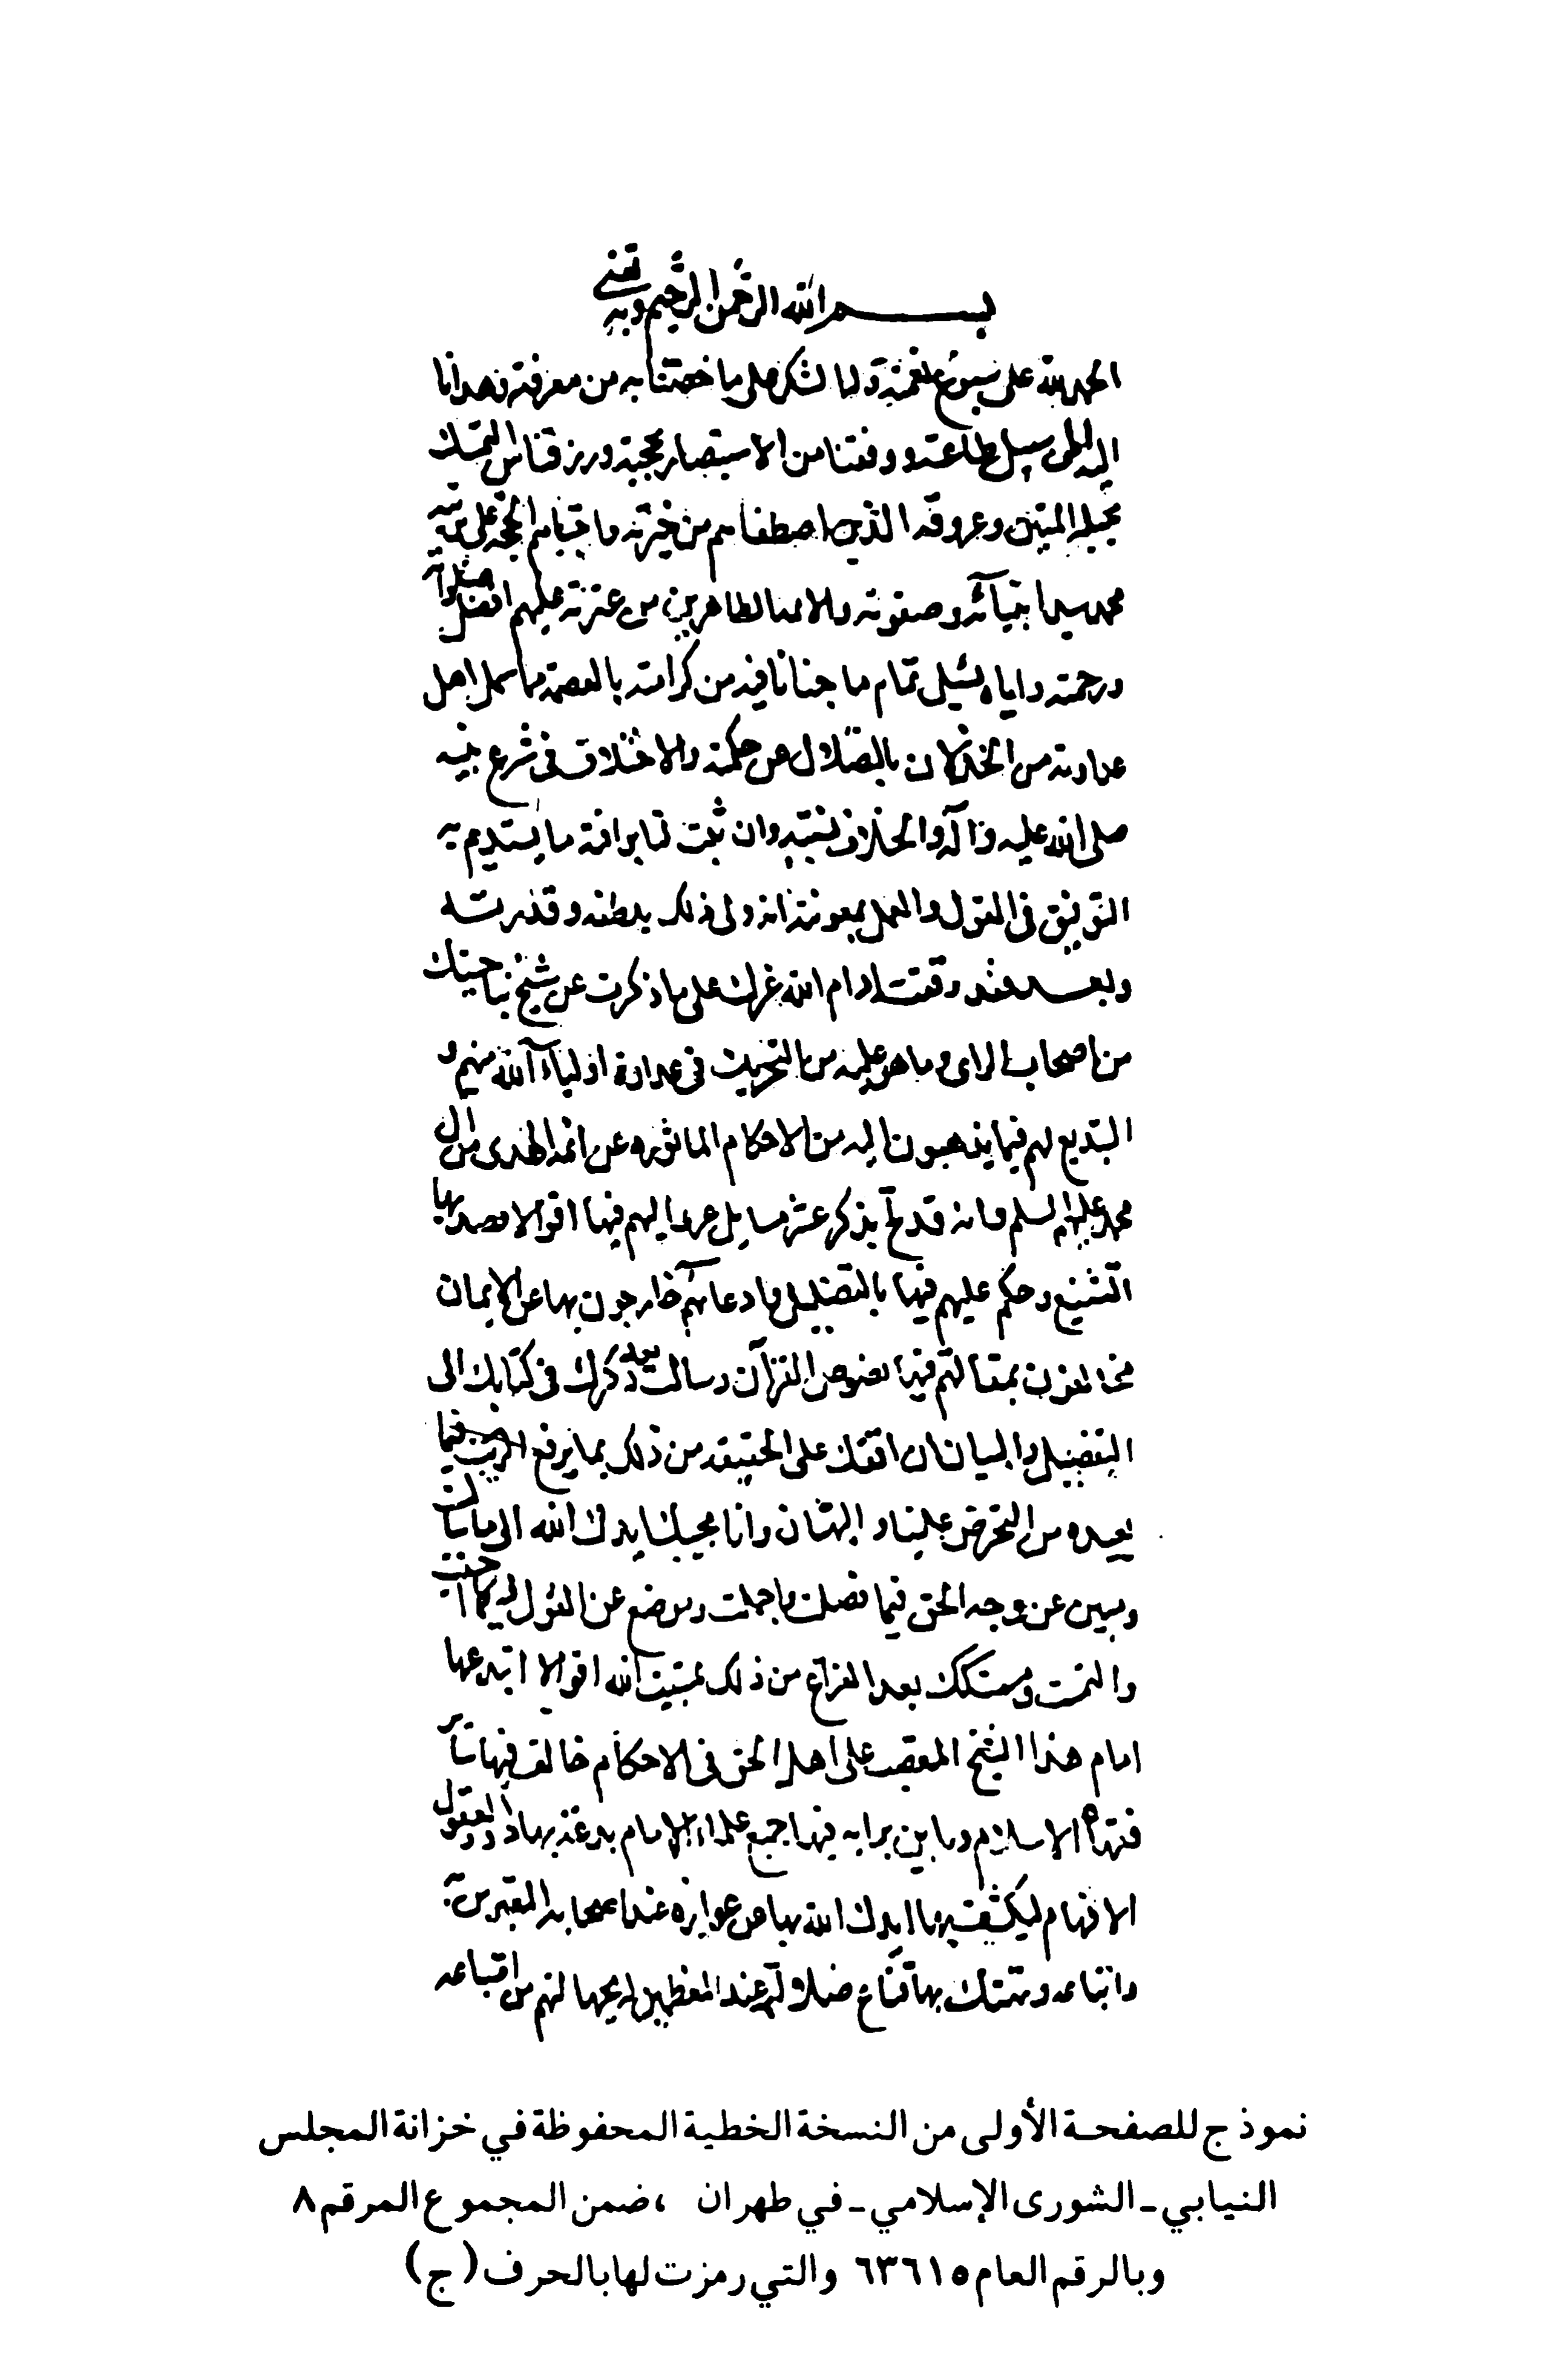 بسم الله الرحمن الرحيم وبه ثقتي
الحمد لله على سبوغ نعمته وله الشكر على ما خصنا به من معرفته وهدانا
اليه من سبيل طاعته ووفقنا من الاستبصار بحجته ورزقناس التمسك
بحبله المتين وعروته الذين اصطفاهم من خيرته واجتباهم الحجة على بريته
محمد سيد انبيائه وصفوته والائمة الطاهرين من عترته عليهم افضل صلواته
ورحمته واياه نسئل تمام ما حبانا فيه من كرامته بالعصمة مما شمل اهل
عداوته من الخذلان بالضلال عن حكمه والاختلاف في شرع نبيه
صلى الله عليه وآله والخلاف لسنته وان يثبت لنا برافته ما يستديم به
التوفيق في القول والعمل بمعونته انه ولى ذلك بلطفه وقدرته
وبعد فقد وقفت ادام الله عزك على ما ذكرت عن شيخ بناحيتك
من اصحاب الراى وما هو عليه من التحريف في عداوة اولياء الله منهم و
التبديع لهم فيما يذهبون اليه من الاحكام الماثوره عن ائمة الهدى من ال
محمد عليهم السلم وانه قد لج بذكر عشر مسايل عزا اليهم فيها اقوالا قصد بها
التشنيع وحكم عليهم فيها بالتضليل وادعا انهم خارجون بها عن الايمان
مخالفون بمقالتهم فيها نصوص القرآن وسالت بعد ذكرك في كتابك الى
التفصيل والبيان ان اقفك على الحقيقة من ذلك بما يرفع الريب فيما
يعيده من التخرص علينا والبهتان وانا مجيبك ايدك الله الى ما سالت
ومبين عن وجه الحق فيما فصلت واجملت وموضح عن القول فيه كما احببت
والتمست ومستكك بعد الفراغ من ذلك بمشيئة الله اقوالا ابتدعها
امام هذا الشيخ المتعصب على اهل الحق في الاحكام خالف فيها ساير
فقهاء الاسلام وباين برايه فيها جميع علماء الامام بدعته بها ذوو العقول
الافهام ليكشف بها ايدك الله بها عن عواره عند اصحابه المغترين به
واتباعه وتهتك بها قناع ضلالته عند المعظمين له بجهالتهم من اتباعه
نموذج للصفحة الأولى من النسخة الخطية المحفوظة في خزانة المجلس
النيابي - الشورى الإسلامي - في طهران ، ضمن المجموع المرقم ٨
وبالرقم العام ٦٣٦١٥ والتي رمزت لها بالحرف (ج)